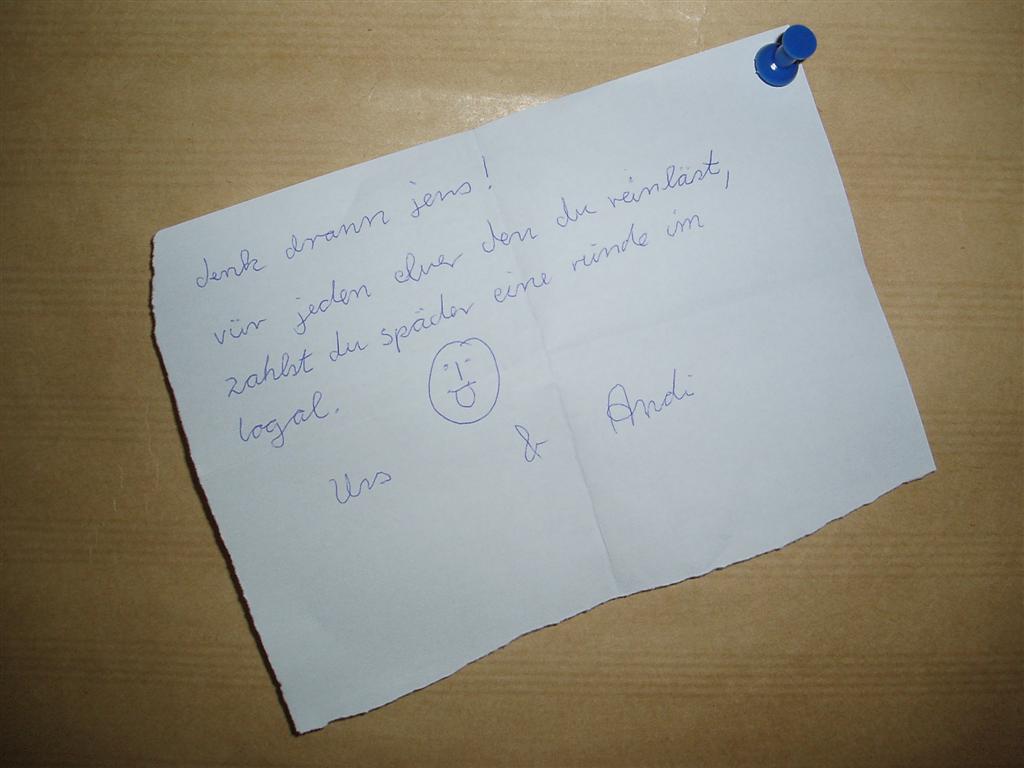 denk drann jens!
vür jeden elver den du reinläst,
zahlst du späder eine runde im
logal.
Urs & Andi